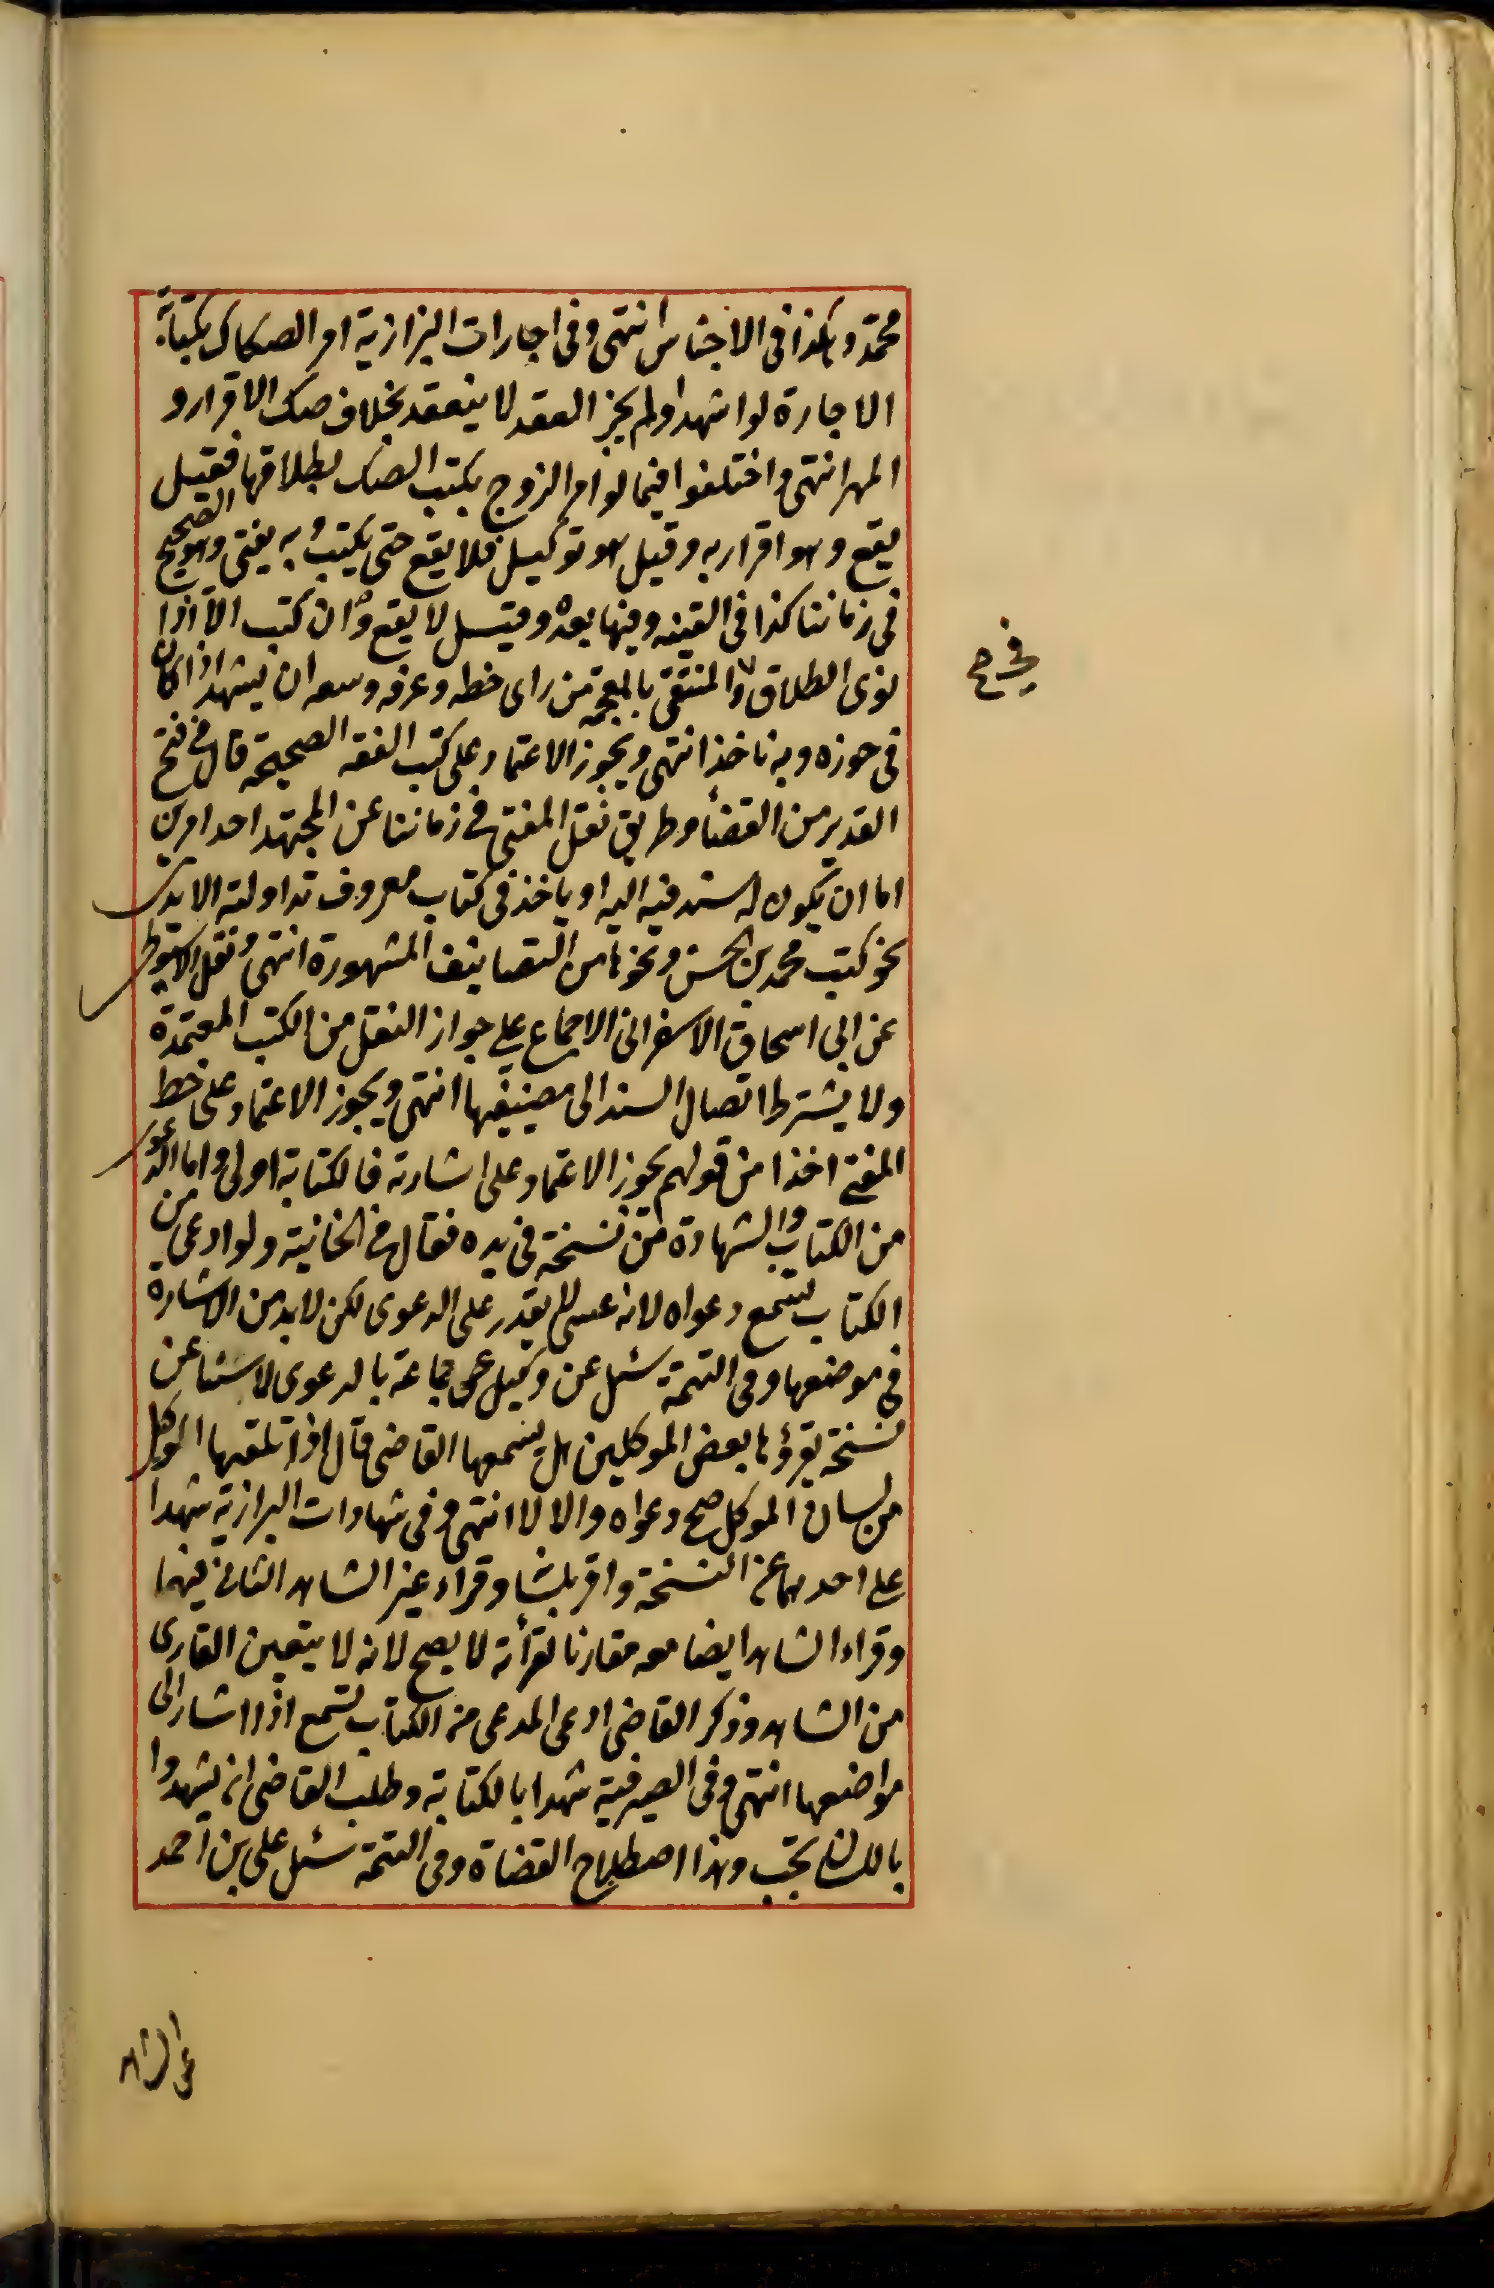 محمد وهكذا فى الاجناس انتهى وفى اجارات البزازية امر الصكاك بكتابة
الاجارة لو اشهدا ولم يجز العقد لا ينعقد بخلاف صك الاقرار و
المهر انتهى واختلفوا فيما لو امر الزوج بكتب الصك بطلاقها فقيل
يقع وهو اقرار به وقيل هو توكيل فلا يقع حتى يكتب وبه يفتى وهو الصحيح
فى زماننا كذا فى القنيه وفيها بعده وقيل لا يقع وان كتب الا اذا
نوى الطلاق وفى المنتقى بالمعجمة من راى خطه وعرفه وسعه ان يشهد اذا كان
فى حوزه وبه ناخذ انتهى ويجوز الاعتماد على كتب الفقه الصحيحة قال فى فتح
القدير من القضأ وطريق نقل المفتى فى زماننا عن المجتهد احد امرين
اما ان يكون له سند فيه اليه او ياخذ فى كتاب معروف تداولته الايدى
نحو كتب محمد بن الحسن ونحوها من التصانيف المشهورة انتهى ونقل الاسيوطى
عن ابى اسحاق الاسفرانى الاجماع على جواز النقل من الكتب المعتمدة
ولا يشترط اتصال السند الى مصنيفيها انتهى ويجوز الاعتماد على خط
المفتى اخذا من قولهم يجوز الاعتماد على اشارته فالكتابة اولى واما الدعوى
من الكتاب والشهادة من نسخة فى يده فقال فى الخانية ولو ادعى من
الكتاب تسمع دعواه لانه عسى لا يقدر على الدعوى لكن لا بد من الاشارة
فى موضعها وفى التتمة سئل عن وكيل عن جماعة بالدعوى لاستئا عن
نسخة يقرؤها بعض الموكلين هل يسمعها القاضى قال اذا تلقها الموكل
من لسان الموكل صح دعواه والا لا انتهى وفى شهادات البزازية شهدا
على احدهما عن النسخة واقر بلشا وقراء غير الشاهد الثانى فيهما
وقراء الشاهد ايضا معه مقارنا لقرأته لا يصح لانه لا يتعين القارى
من الشاهد وذكر القاضى ادعى المدعى من الكتاب تسمع اذا اشار الى
مواضعها انتهى وفى الصيرفية شهدا بالكتابة وطلب القاضى ان يشهدوا
باللسان يجب وهذا اصطلاح القضاة وفى التتمة سئل على بن احمد
عن الشاهد